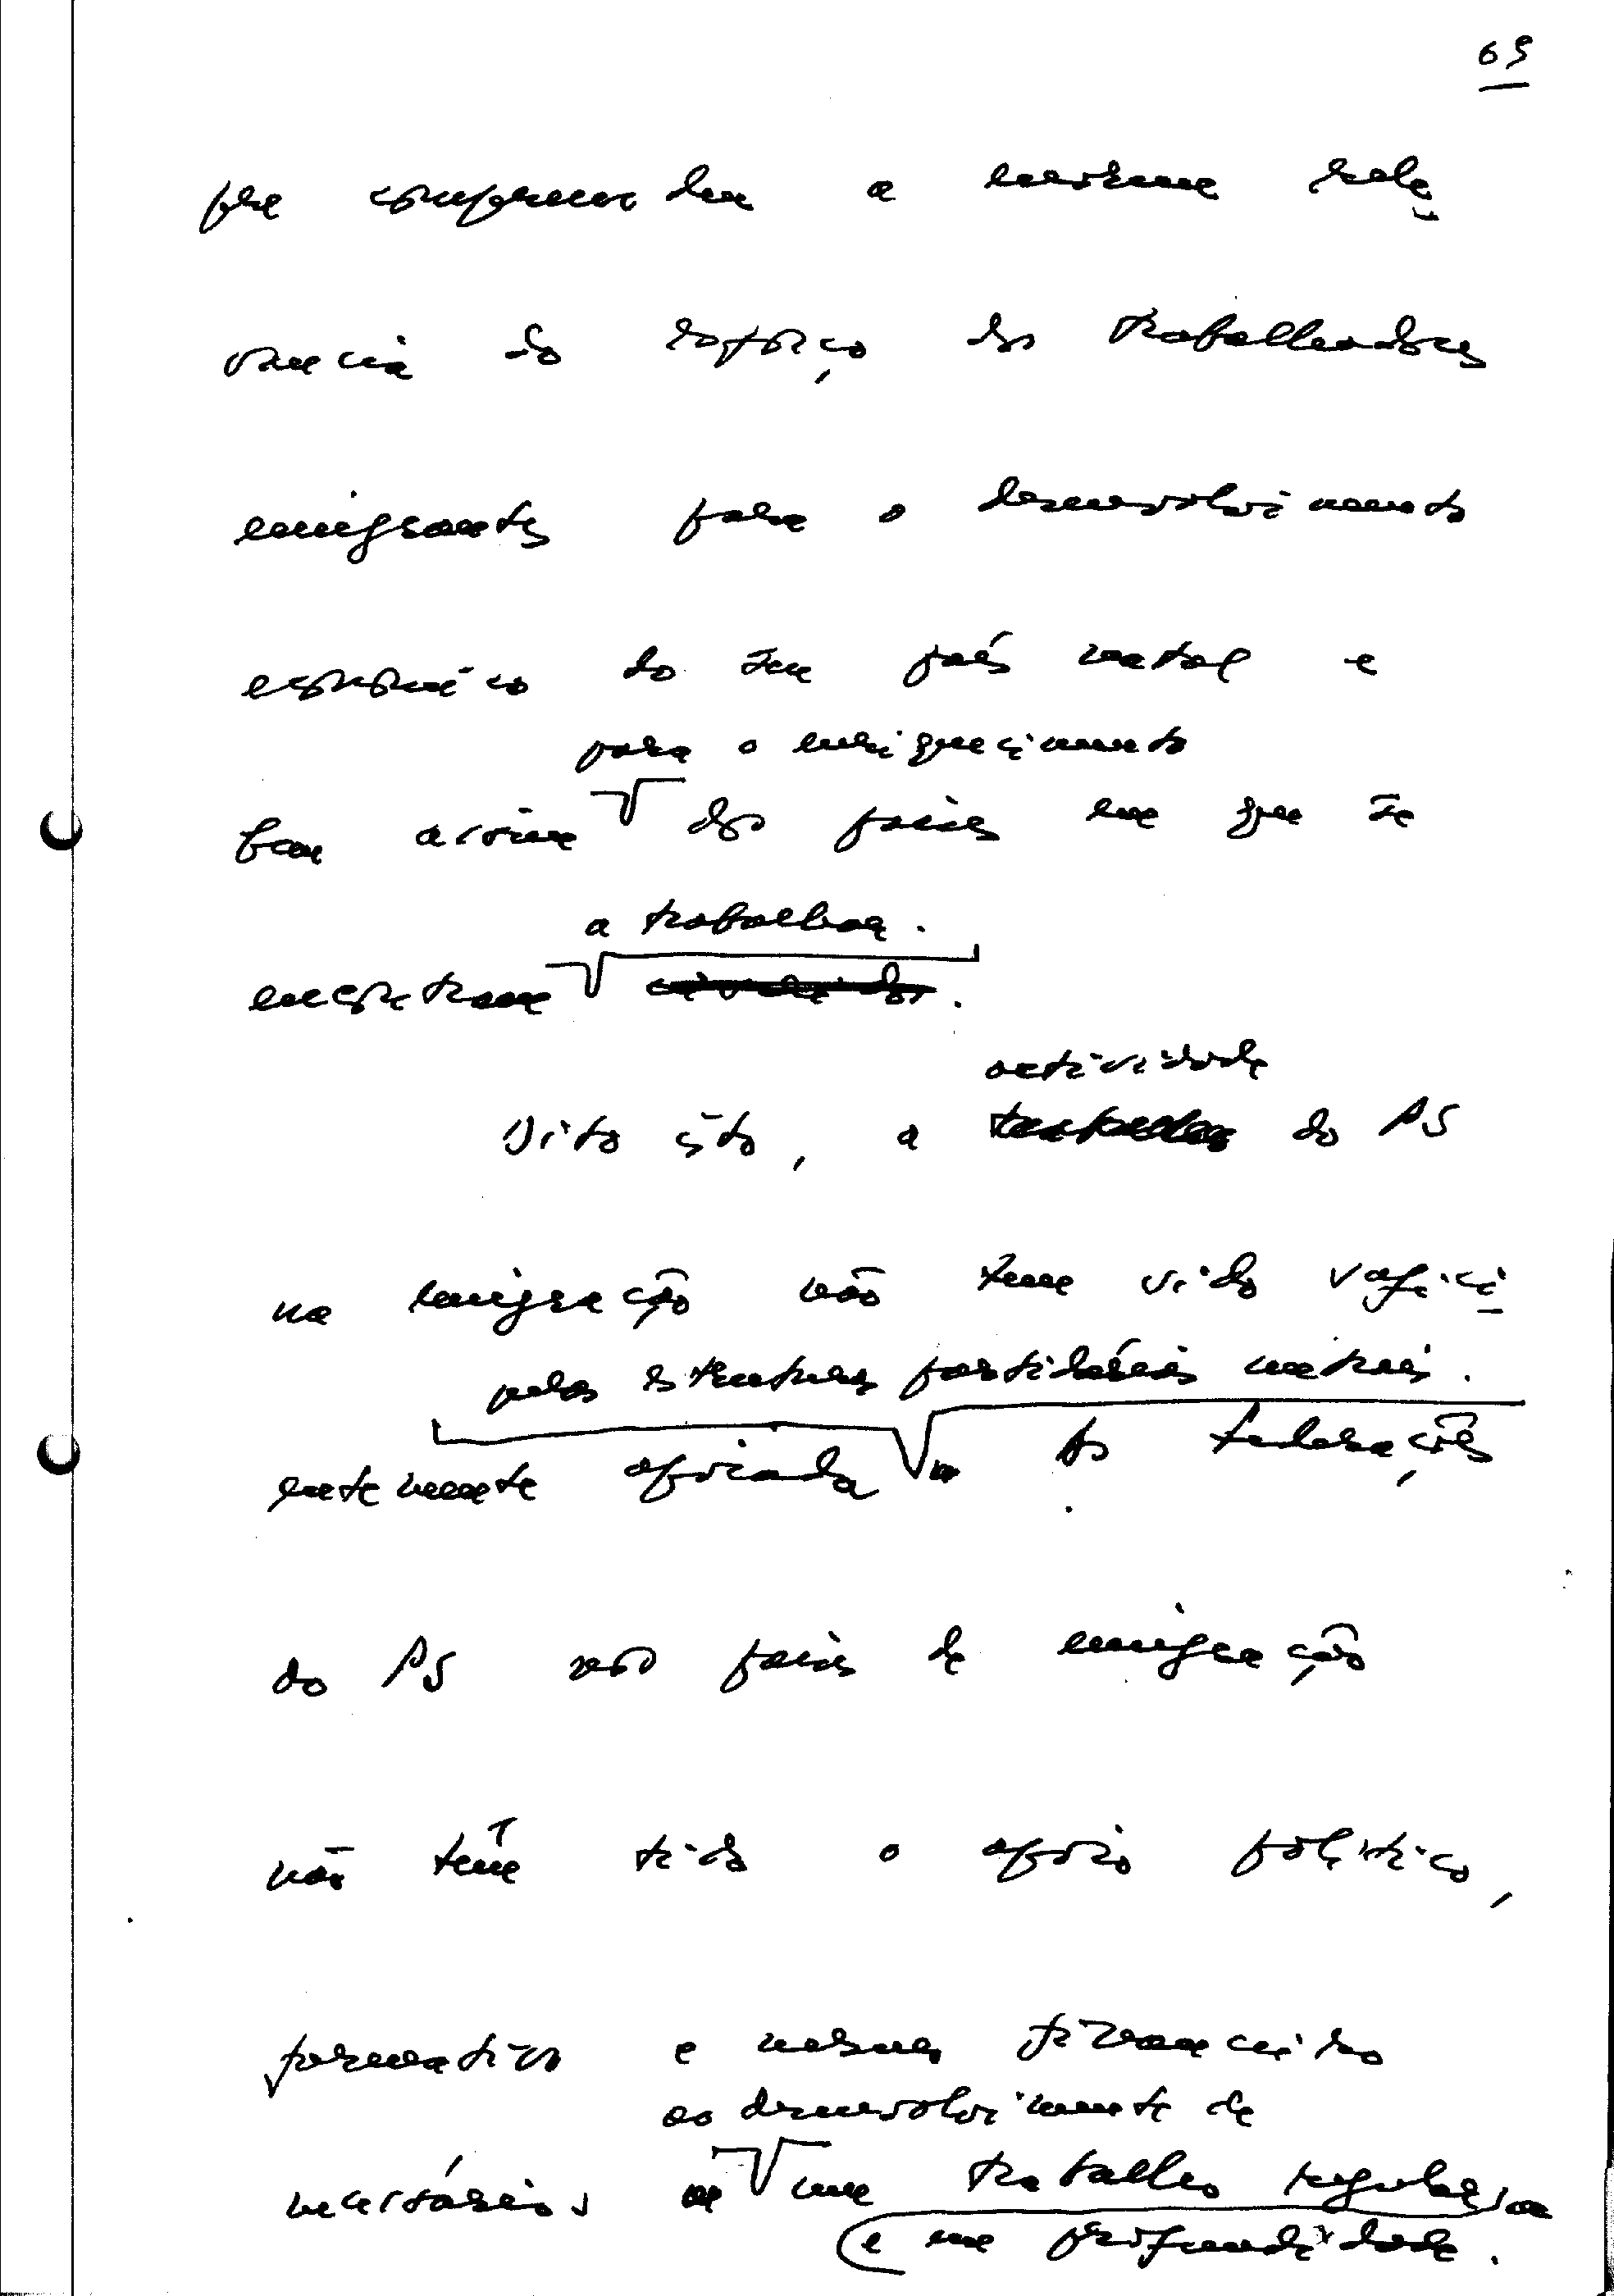 69
pre compreender a enorme rele
vancia do esforço dos trabalhadores
emigrantes para o desenvolvimento
económico do seu país natal e
para o enriquecimento
bem assim dos países em que se
a trabalhar.
encontram
actividade
Dito isto, a do PS
na emigração não tem sido sufici
pelas estruturas partidárias centrais.
entemente apoiada As Federações
do PS nos países de emigração
não têm tido o apoio político,
formativo e mesmo financeiro
ao desenvolvimento de
necessários um trabalho regular
e em profundidade.